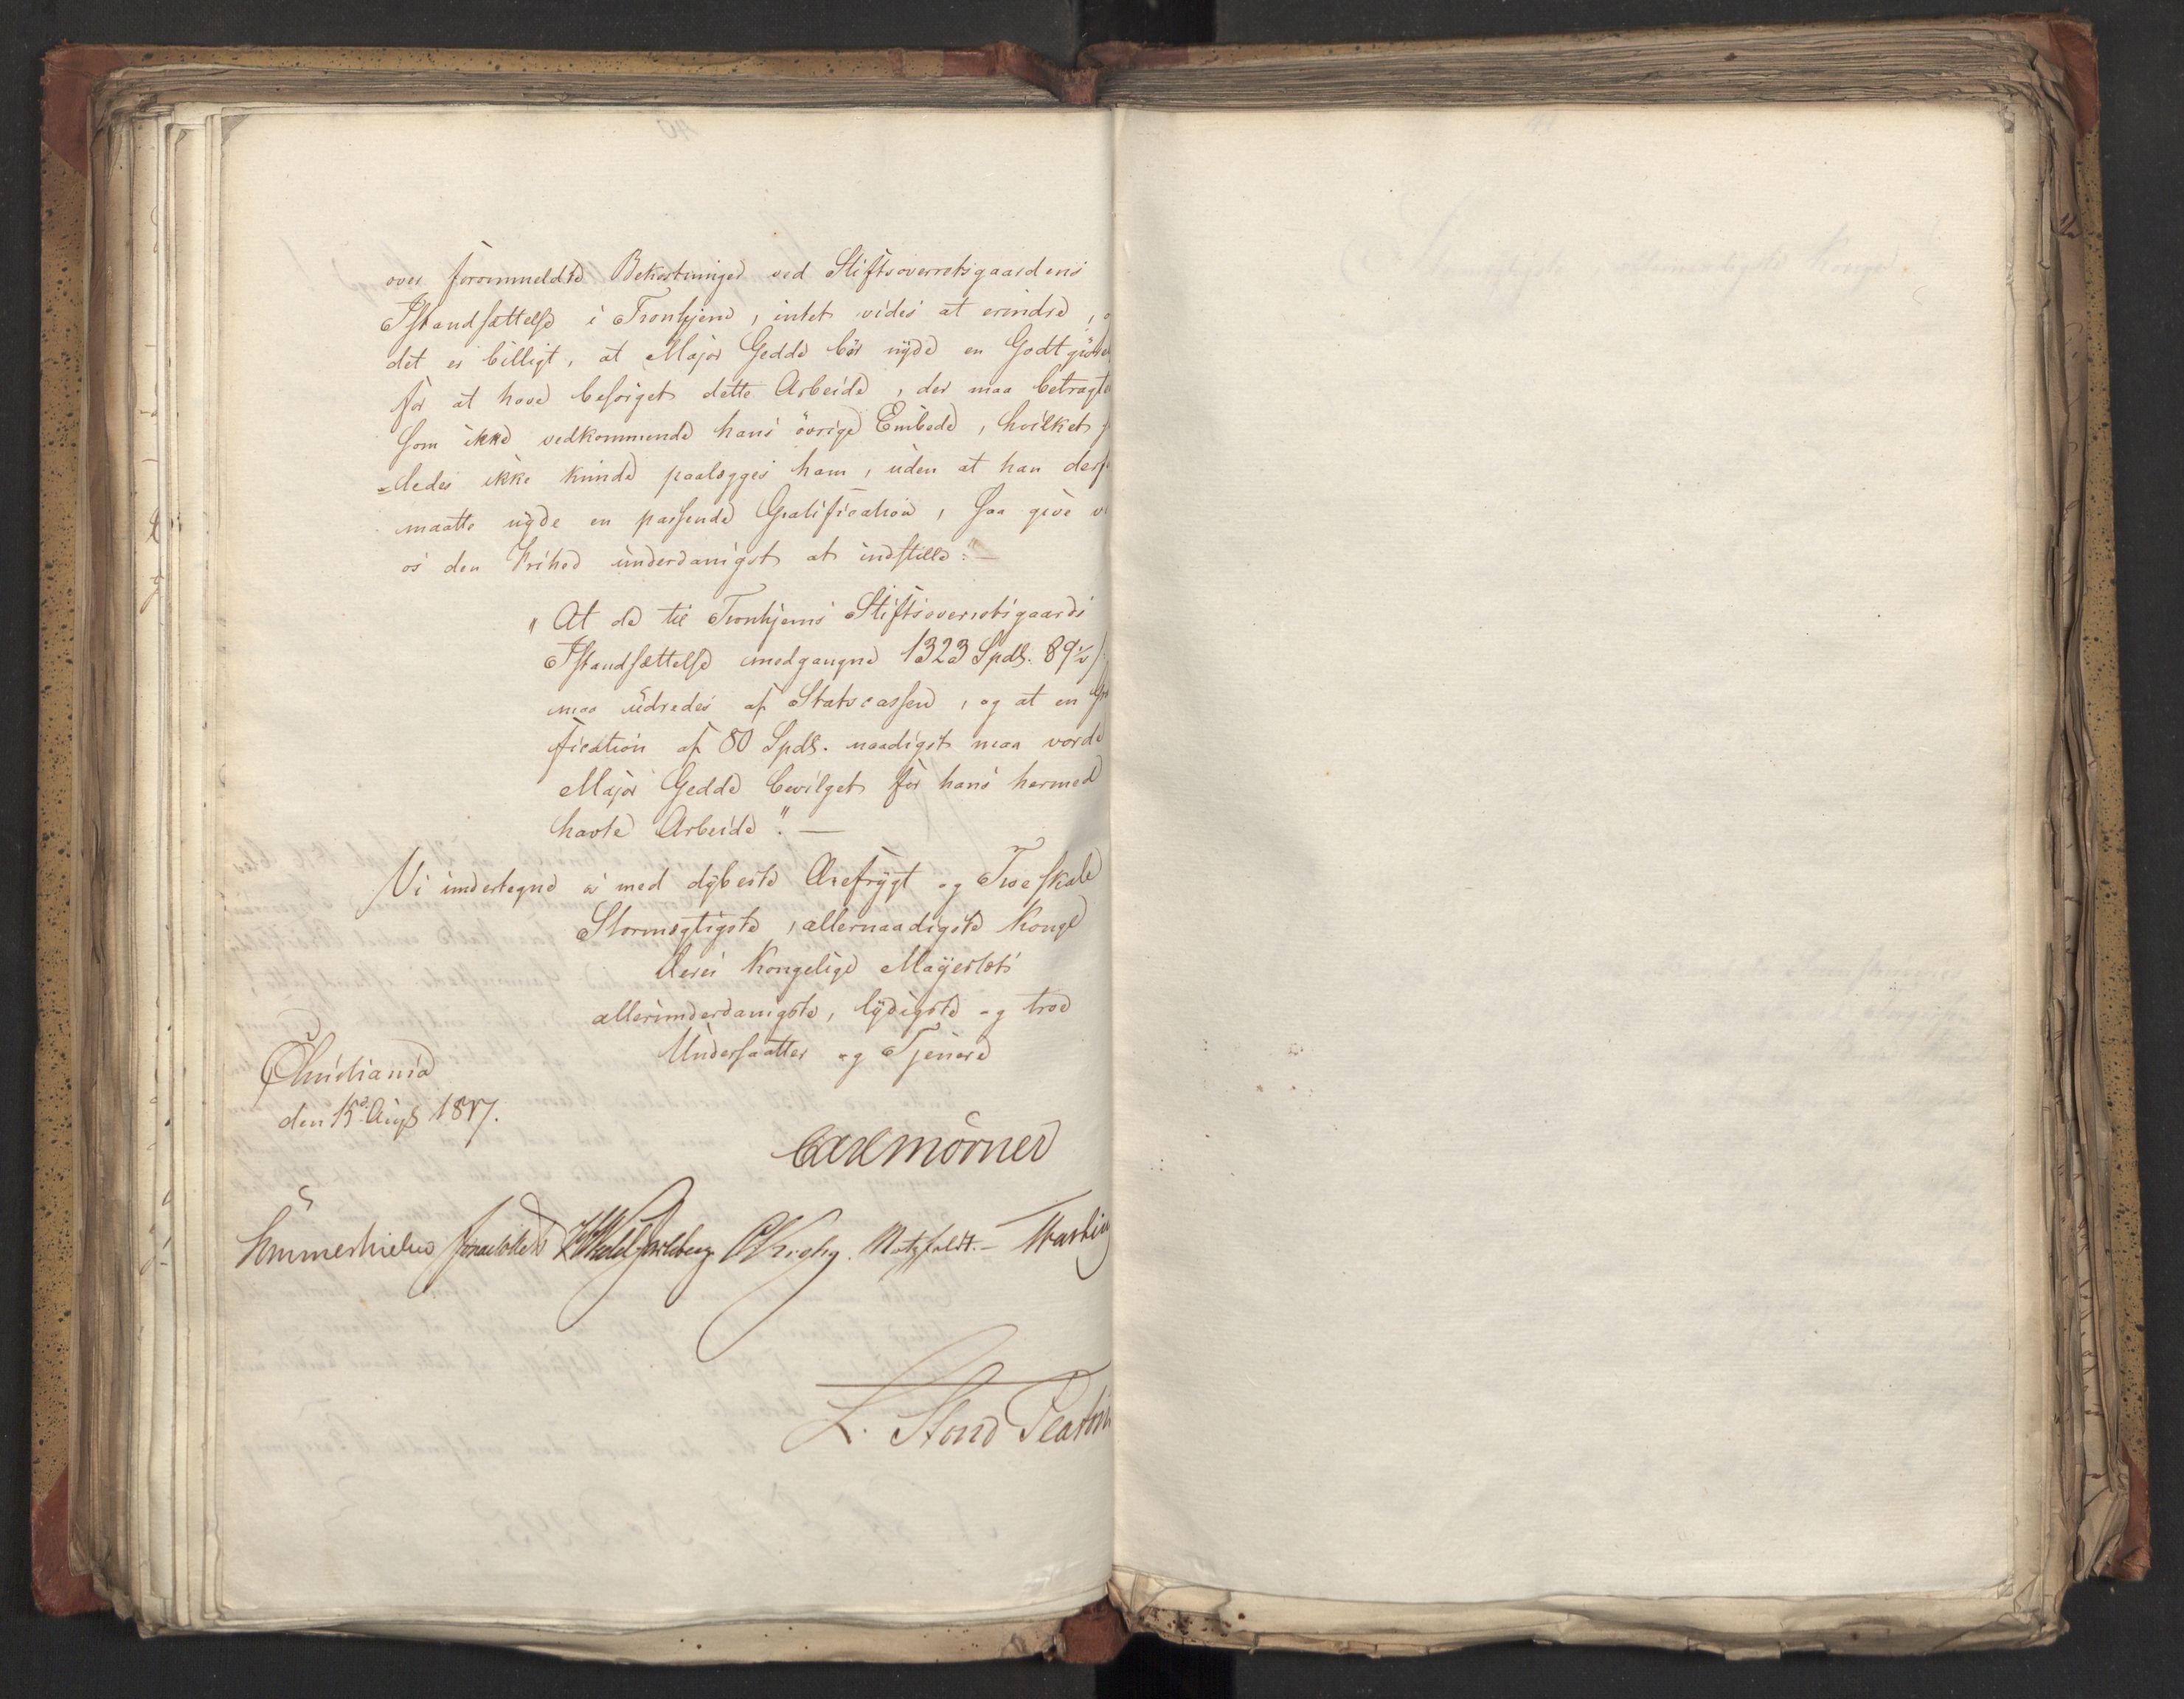 over forommeldte Bekostninger ved Stiftsoverretsgaardens
Istandsættelse i Tronhjem, intet vides at erindre,
det er billigt, at Major Gedde bør nyde en Godtgiørel
for at have besørget dette Arbeide, der maa betragte
som ikke vedkommende hans øvrige Embede, hvilket
=ledes ikke kunde paalægges ham, uden at han derf
maatte nyde en passende Gratification, saa give vi
os den Frihed underdanigst at indstille:—
"At de til Tronhjems Stiftsoverretsgaards
Istandsættelse medgangne 1323 Spdlr. 89½
maa udredes af Statscassen, og at en Gra
fication af 80 Spdlr. naadigst maa vorde
Major Gedde bevilget for hans hermed
havte Arbeide". —
Vi undertegne os med dybeste Ærefrygt og Troeskab
Stormægtigste, allernaadigste Konge
Deres Kongelige Mayestæts
allerunderdanigste, lydigste og troe
Undersaatter og Tjenere
Christiania
den 15de Augs 1817.
Carl Mörner
Sommerhielm HWedelJarlsberg CKrogh. Motzfeldt.—
L. Stoud Plato